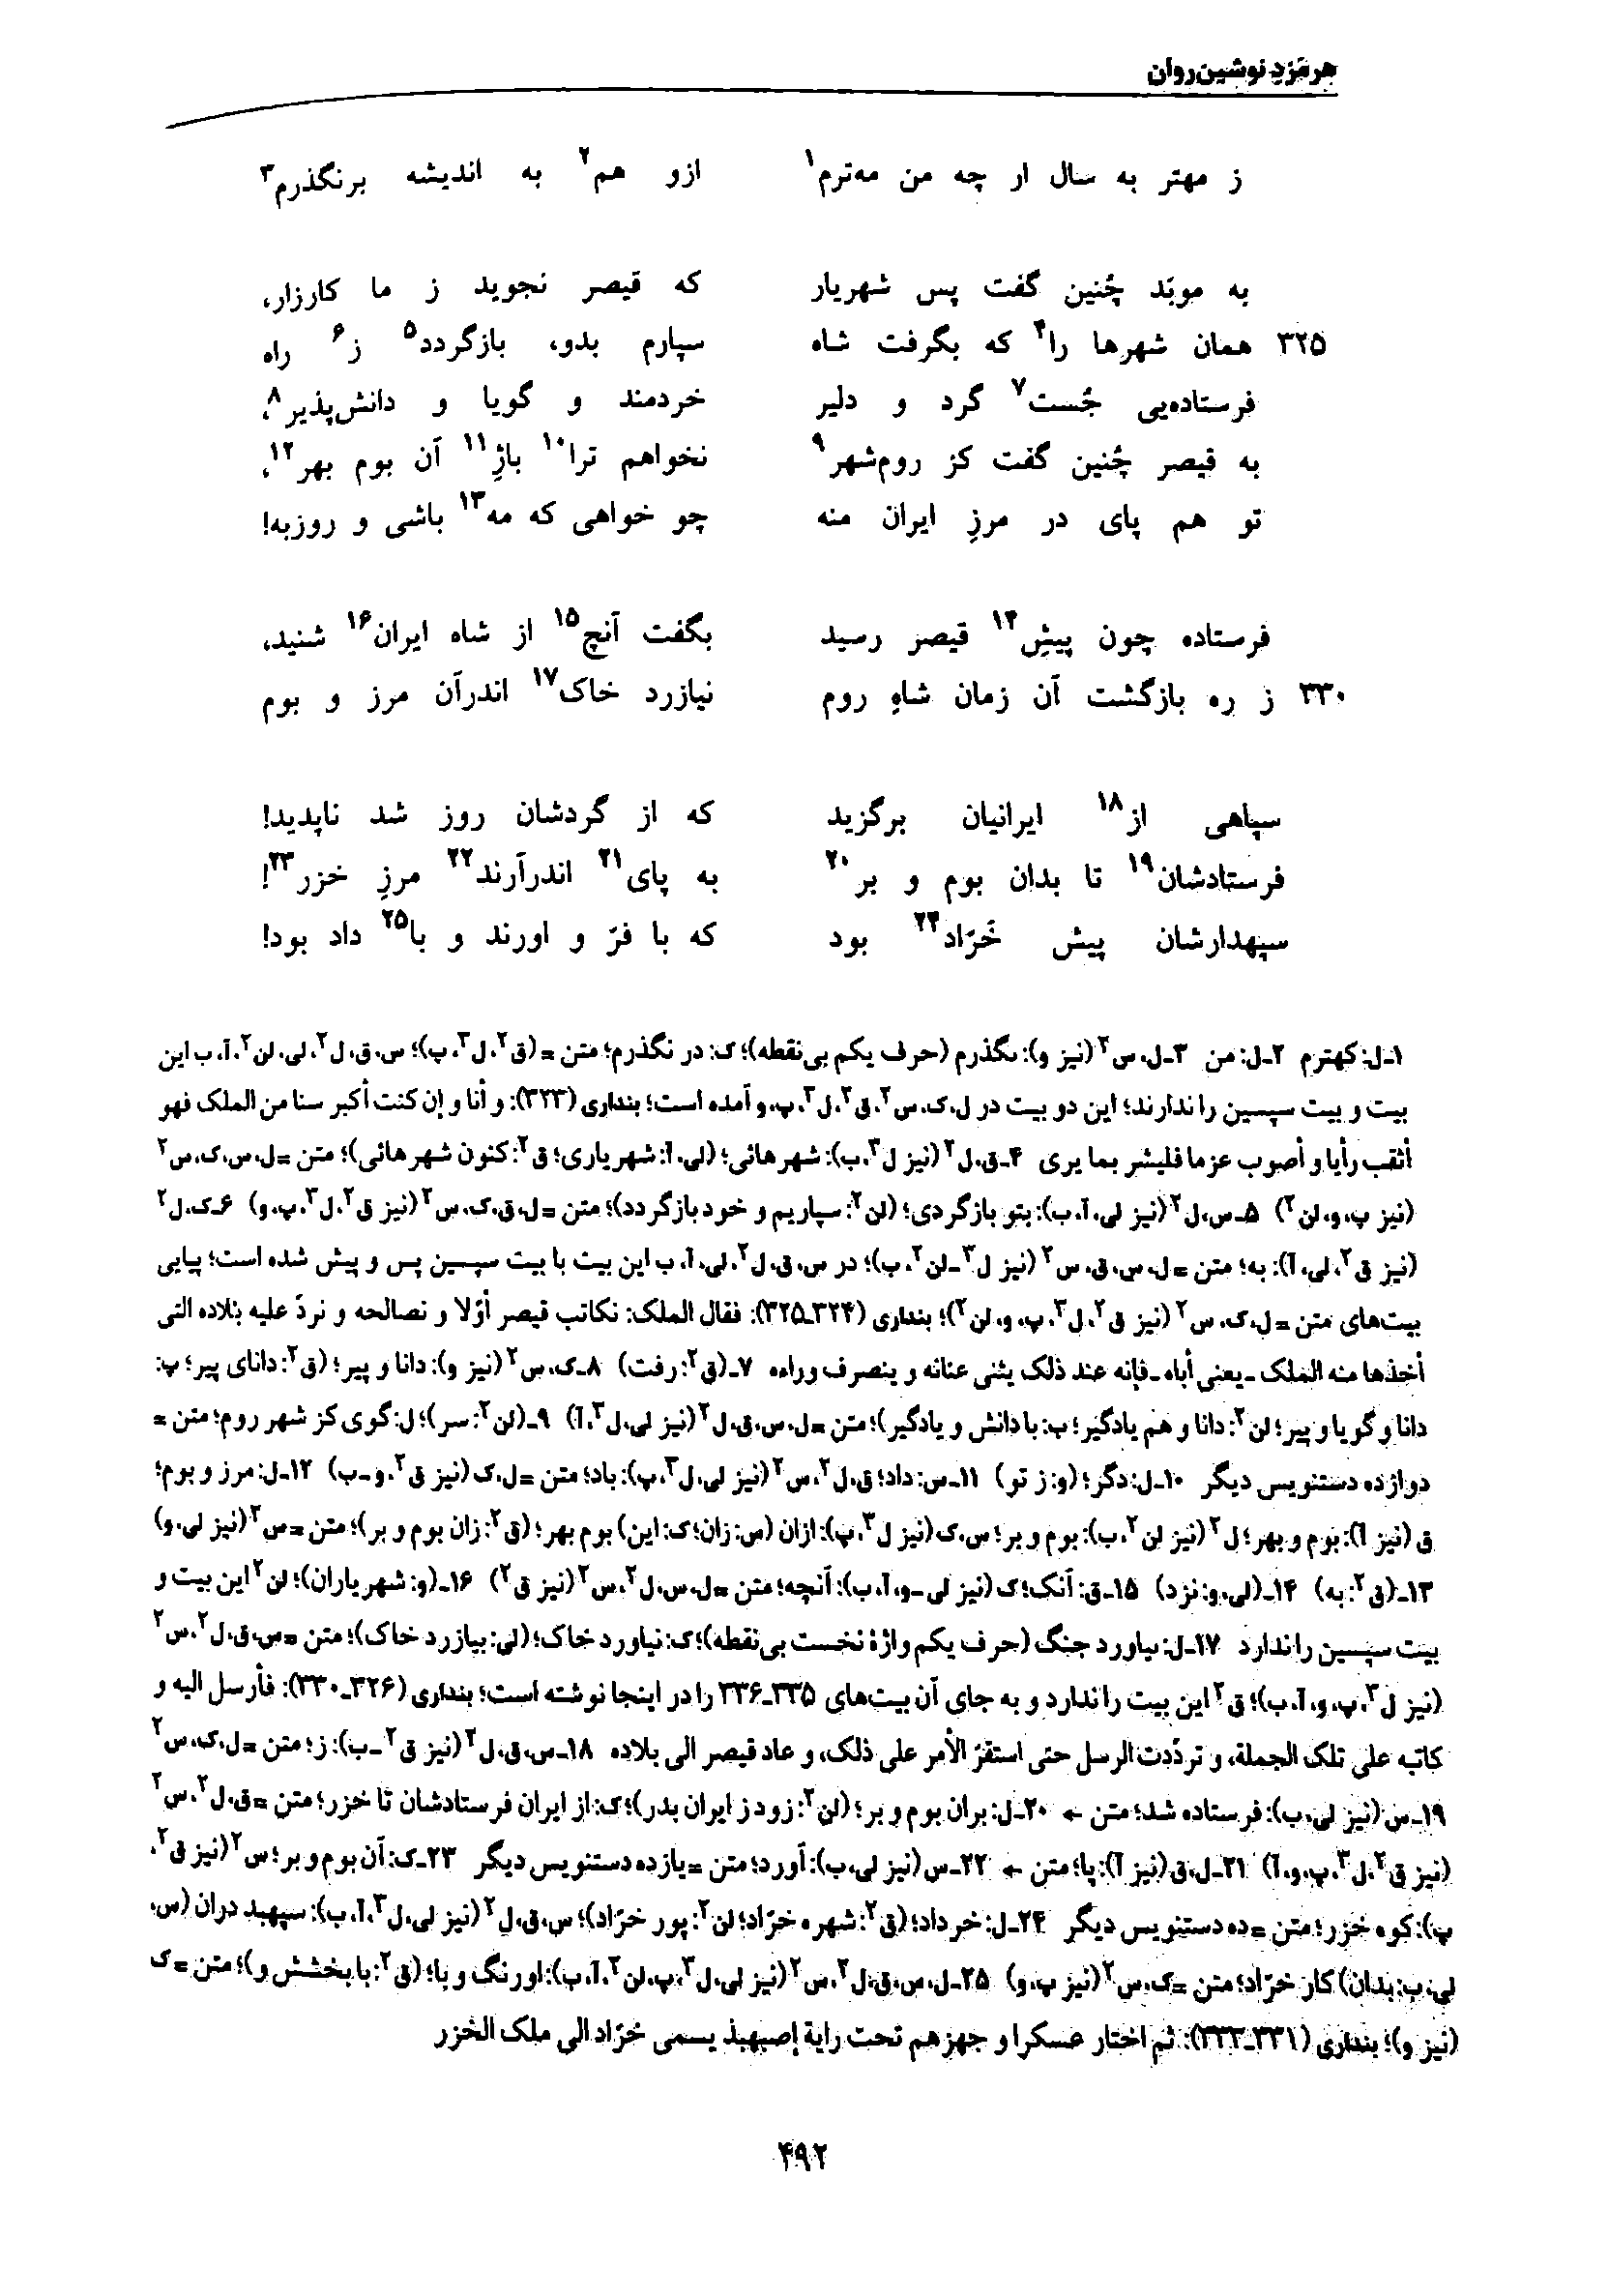 هرمزد نوشین‌روان
ز مهتر به سال ار چه من مه‌ترم۱ ازو هم۲ به اندیشه برنگذرم۳
به موبَد چُنین گفت پس شهریار که قیصر نجوید ز ما کارزار،
۳۲۵ همان شهرها را۴ که بگرفت شاه سپارم بدو، بازگردد۵ ز۶ راه
فرستاده‌یی جُست۷ گرد و دلیر خردمند و گویا و دانش‌پذیر۸،
به قیصر چُنین گفت کز روم‌شهر۹ نخواهم ترا۱۰ باژِ۱۱ آن بوم بهر۱۲،
تو هم پای در مرزِ ایران منه چو خواهی که مه۱۳ باشی و روزبه!
فرستاده چون پیشِ۱۴ قیصر رسید بگفت آنچ۱۵ از شاه ایران۱۶ شنید،
۳۳۰ ز ره بازگشت آن زمان شاهِ روم نیازرد خاک۱۷ اندرآن مرز و بوم
سپاهی از۱۸ ایرانیان برگزید که از گردشان روز شد ناپدید!
فرستادشان۱۹ تا بدان بوم و بر۲۰ به پای۲۱ اندرآرند۲۲ مرزِ خزر۲۳!
سپهدارشان پیش خَرّاد۲۴ بود که با فرّ و اورند و با۲۵ داد بود!
۱ـ ل: کهترم ۲ـ ل: من ۳ـ ل، س۲ (نیز و): ىگذرم (حرف یکم بی‌نقطه)؛ ک: در نگذرم؛ متن = (ق۲، ل۳، پ)؛ س، ق، ل۲، لی، لن۲، آ، ب این
بیت و بیت سپسین را ندارند؛ این دو بیت در ل، ک، س۲، ق۲، ل۳، پ، و آمده است؛ بنداری (۳۲۳): و أنا و إن کنت أکبر سنا من الملک فهو
أثقب رأیا و أصوب عزما فلیشر بما یری ۴ـ ق، ل۲ (نیز ل۳، ب): شهرهائی؛ (لی، آ: شهریاری؛ ق۲: کنون شهرهائی)؛ متن = ل، س، ک، س۲
(نیز پ، و، لن۲) ۵ـ س، ل۲ (نیز لی، آ، ب): بتو بازگردی؛ (لن۲: سپاریم و خود بازگردد)؛ متن = ل، ق، ک، س۲ (نیز ق۲، ل۳، پ، و) ۶ـ ک، ل۲
(نیز ق۲، لی، آ): به؛ متن = ل، س، ق، س۲ (نیز ل۳ـ لن۲، ب)؛ در س، ق، ل۲، لی، آ، ب این بیت با بیت سپسین پس و پیش شده است؛ پیاپی
بیت‌های متن = ل، ک، س۲ (نیز ق۲، ل۳، پ، و، لن۲)؛ بنداری (۳۲۴ـ۳۲۵): فقال الملک: نکاتب قیصر أوّلا و نصالحه و نردّ علیه بلاده التی
أخذها منه الملک ـ یعنی أباه ـ فإنه عند ذلک یثنی عنانه و ینصرف وراءه ۷ـ (ق۲: رفت) ۸ـ ک، س۲ (نیز و): دانا و پیر؛ (ق۲: دانای پیر؛ پ:
دانا و گویا و پیر؛ لن۲: دانا و هم یادگیر؛ ب: با دانش و یادگیر)؛ متن = ل، س، ق، ل۲ (نیز لی، ل۳، آ) ۹ـ (لن۲: سر)؛ ل: گوی کز شهر روم؛ متن =
دوازده دستنویس دیگر ۱۰ـ ل: دگر؛ (و: ز تو) ۱۱ـ س: داد؛ ق، ل۲، س۲ (نیز لی، ل۳، پ): باد؛ متن = ل، ک (نیز ق۲، و ـ ب) ۱۲ـ ل: مرز و بوم؛
ق (نیز آ): بوم و بهر؛ ل۲ (نیز لن۲، ب): بوم و بر؛ س، ک (نیز ل۳، پ): ازان (س: زان؛ ک: این) بوم بهر؛ (ق۲: زان بوم و بر)؛ متن = س۲ (نیز لی، و)
۱۳ـ (ق۲: به) ۱۴ـ (لی، و: نزد) ۱۵ـ ق: آنک؛ ک (نیز لی ـ و، آ، ب): آنچه؛ متن = ل، س، ل۲، س۲ (نیز ق۲) ۱۶ـ (و: شهریاران)؛ لن۲ این بیت و
بیت سپسین را ندارد ۱۷ـ ل: ىیاورد جنگ (حرف یکم واژهٔ نخست بی‌نقطه)؛ ک: نیاورد خاک؛ (لی: بیازرد خاک)؛ متن = س، ق، ل۲، س۲
(نیز ل۳، پ، و، آ، ب)؛ ق۲ این بیت را ندارد و به جای آن بیت‌های ۳۳۵ـ۳۳۶ را در اینجا نوشته است؛ بنداری (۳۲۶ـ۳۳۰): فأرسل الیه و
کاتبه علی تلک الجملة، و تردّدت الرسل حتی استقرّ الأمر علی ذلک، و عاد قیصر الی بلاده ۱۸ـ س، ق، ل۲ (نیز ق۲ ـ ب): ز؛ متن = ل، ک، س۲
۱۹ـ س (نیز لی، ب): فرستاده شد؛ متن ← ۲۰ـ ل: بران بوم و بر؛ (لن۲: زود ز ایران بدر)؛ ک: از ایران فرستادشان تا خزر؛ متن = ق، ل۲، س۲
(نیز ق۲، ل۳، پ، و، آ) ۲۱ـ ل، ق (نیز آ): پا؛ متن ← ۲۲ـ س (نیز لی، ب): آورد؛ متن = یازده دستنویس دیگر ۲۳ـ ک: آن بوم و بر؛ س۲ (نیز ق۲،
پ): کوه خزر؛ متن = ده دستنویس دیگر ۲۴ـ ل: خرداد؛ (ق۲: شهره خرّاد؛ لن۲: پور خرّاد)؛ س، ق، ل۲ (نیز لی، ل۳، آ، ب): سپهبد دران (س،
لی، ب: بدان) کار خرّاد؛ متن = ک، س۲ (نیز پ، و) ۲۵ـ ل، س، ق، ل۲، س۲ (نیز لی، ل۳، پ، لن۲، آ، ب): اورنگ و با؛ (ق۲: با بخشش و)؛ متن = ک
(نیز و)؛ بنداری (۳۳۱ـ۳۳۳): ثم اختار عسکرا و جهزهم تحت رایة إصبهبذ یسمی خرّاد الی ملک الخزر
۴۹۲